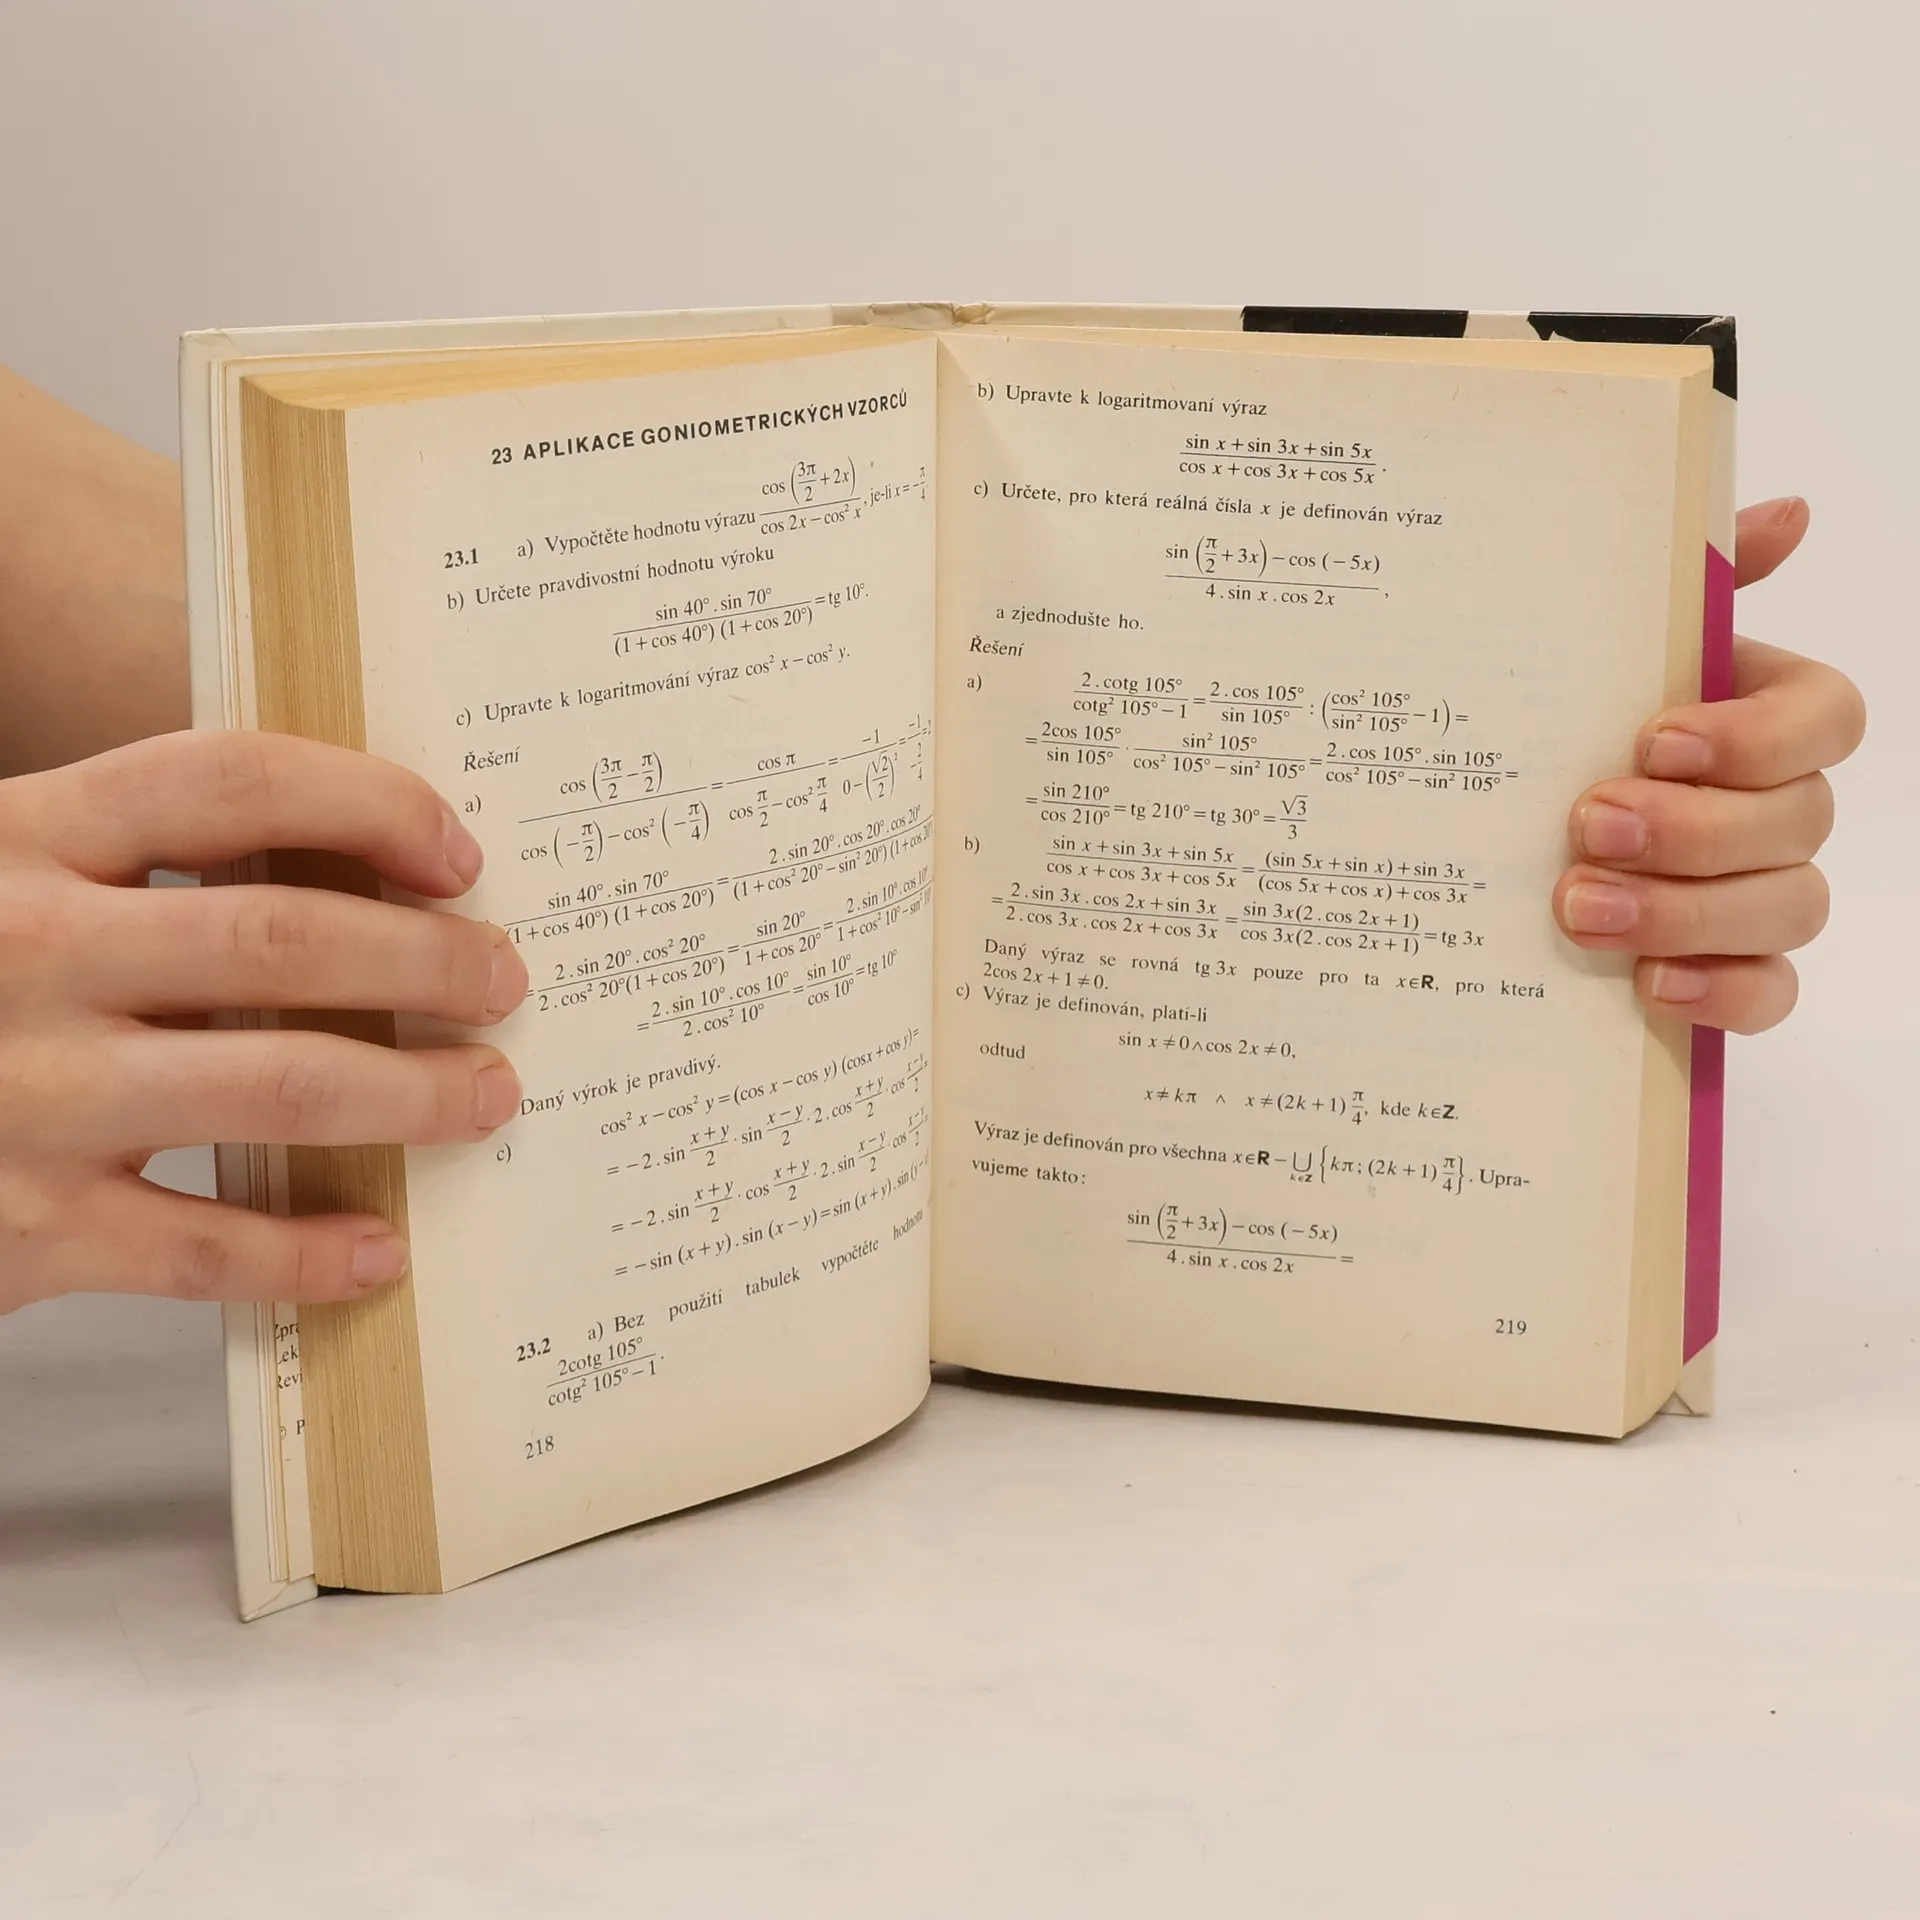 23 APLIKACE GONIOMETRICKÝCH VZORCŮ
23.1 a) Vypočtěte hodnotu výrazu cos (3π/2 + 2x) / (cos 2x − cos² x), je-li x = −π/4
b) Určete pravdivostní hodnotu výroku
sin 40° . sin 70° / ((1 + cos 40°) (1 + cos 20°)) = tg 10°.
c) Upravte k logaritmování výraz cos² x − cos² y.
Řešení
a) cos (3π/2 − π/2) / (cos (−π/2) − cos² (−π/4)) = cos π / (cos π/2 − cos² π/4) = −1 / (0 − (√2/2)²) =
sin 40° . sin 70° / ((1 + cos 40°) (1 + cos 20°)) = 2 . sin 20° . cos 20° . cos 20° / ((1 + cos² 20° − sin² 20°) (1 + cos 20°)
= 2 . sin 20° . cos² 20° / (2 . cos² 20°(1 + cos 20°)) = sin 20° / (1 + cos 20°) = 2 . sin 10° . cos 10° / (1 + cos² 10° − sin² 10°
= 2 . sin 10° . cos 10° / (2 . cos² 10°) = sin 10° / cos 10° = tg 10°
Daný výrok je pravdivý.
c) cos² x − cos² y = (cos x − cos y) (cos x + cos y) =
= −2 . sin (x+y)/2 . sin (x−y)/2 . 2 . cos (x+y)/2 . cos (x−y)/2 =
= −2 . sin (x+y)/2 . cos (x+y)/2 . 2 . sin (x−y)/2 . cos (x−y)/2 =
= −sin (x + y) . sin (x − y) = sin (x + y) . sin (y −
23.2 a) Bez použití tabulek vypočtěte hodnotu
2cotg 105° / (cotg² 105° − 1) .
218
Zpra
Lek
Revi
© P
b) Upravte k logaritmovaní výraz
(sin x + sin 3x + sin 5x) / (cos x + cos 3x + cos 5x) .
c) Určete, pro která reálná čísla x je definován výraz
(sin (π/2 + 3x) − cos (− 5x)) / (4 . sin x . cos 2x) ,
a zjednodušte ho.
Řešení
a) 2 . cotg 105° / (cotg² 105° − 1) = 2 . cos 105° / sin 105° : (cos² 105° / sin² 105° − 1) =
= 2cos 105° / sin 105° . sin² 105° / (cos² 105° − sin² 105°) = 2 . cos 105° . sin 105° / (cos² 105° − sin² 105°) =
= sin 210° / cos 210° = tg 210° = tg 30° = √3/3
b) (sin x + sin 3x + sin 5x) / (cos x + cos 3x + cos 5x) = ((sin 5x + sin x) + sin 3x) / ((cos 5x + cos x) + cos 3x) =
= (2 . sin 3x . cos 2x + sin 3x) / (2 . cos 3x . cos 2x + cos 3x) = sin 3x(2 . cos 2x + 1) / (cos 3x(2 . cos 2x + 1)) = tg 3x
Daný výraz se rovná tg 3x pouze pro ta x∈R, pro která
2cos 2x + 1 ≠ 0.
c) Výraz je definován, platí-li
sin x ≠ 0 ∧ cos 2x ≠ 0,
odtud
x ≠ kπ ∧ x ≠ (2k + 1) π/4, kde k∈Z.
Výraz je definován pro všechna x∈R − ⋃ k∈Z {kπ; (2k + 1) π/4}. Upra-
vujeme takto:
(sin (π/2 + 3x) − cos (− 5x)) / (4 . sin x . cos 2x) =
219